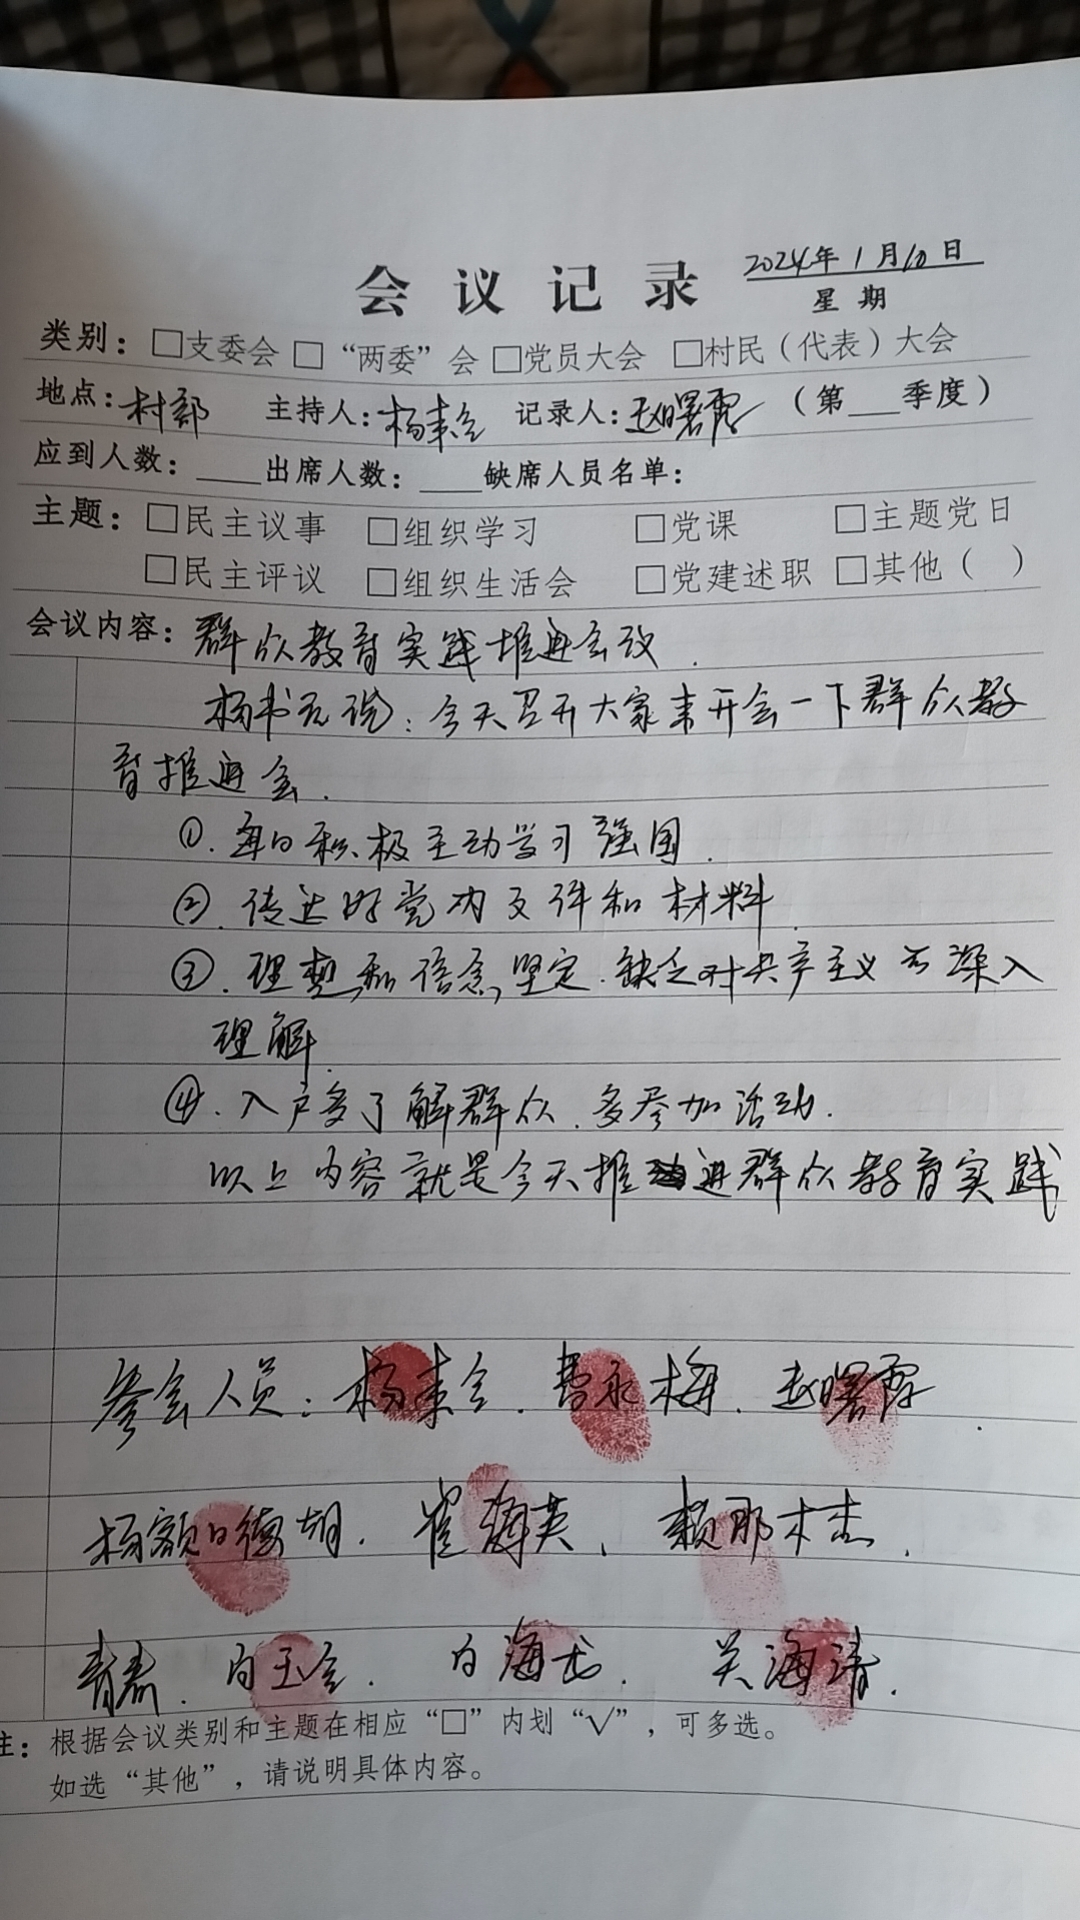 会议记录 2024年1月10日
星期
类别：□支委会 □“两委”会 □党员大会 □村民（代表）大会
地点：村部 主持人：杨来全 记录人：赵曙霞 （第___季度）
应到人数：____出席人数：____缺席人员名单：
主题：□民主议事 □组织学习 □党课 □主题党日
□民主评议 □组织生活会 □党建述职 □其他（ ）
会议内容：群众教育实践推进会议.
杨书记说：今天召开大家来开会一下群众教
育推进会.
①.每日积极主动学习强国.
②.传达好党内文件和材料.
③.理想和信念,坚定.缺乏对共产主义不深入
理解.
④.入户多了解群众.多参加活动.
以上内容就是今天推进群众教育实践
参会人员：杨来全.曹永梅.赵曙霞.
杨额日德胡.崔海英、赖那木杰.
青春.白玉全.白海龙.关海清.
注：根据会议类别和主题在相应“□”内划“√”，可多选。
如选“其他”，请说明具体内容。